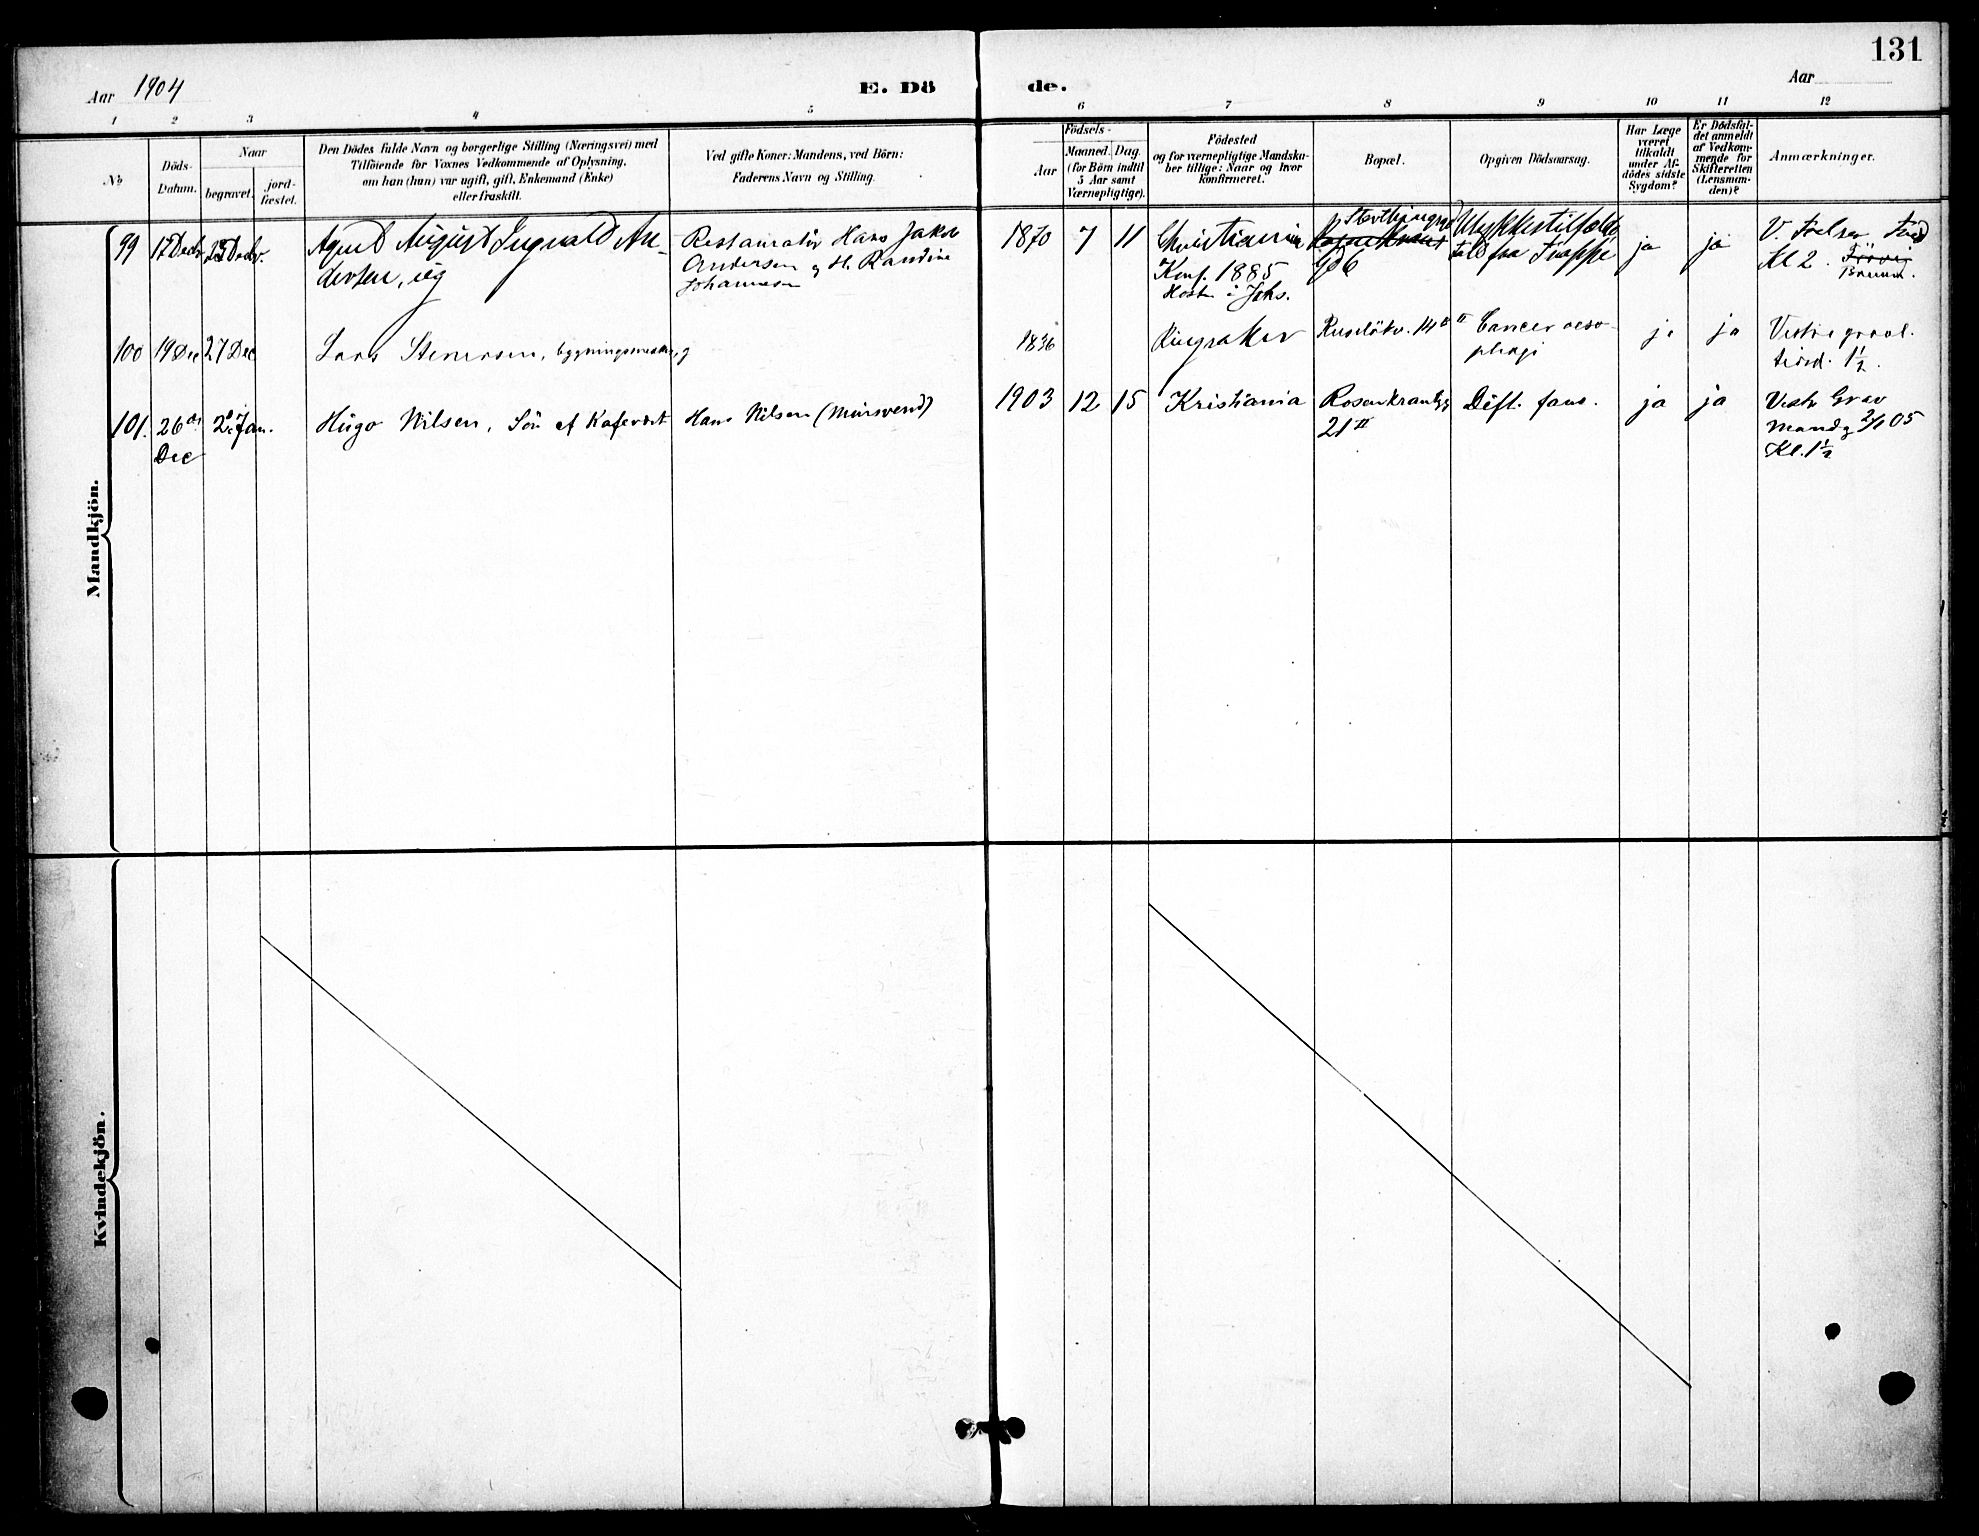 131
Aar 1904
E. Dö
de.
Aar
1 2 3 4 5 6 7 8 9 10 11 12
No
Döds-
Datum.
Naar
begravet.
jord-
fæstet.
Den Dödes fulde Navn og borgerlige Stilling (Næringsvei) med
Tilföiende for Voxnes Vedkommende af Oplysning,
om han (hun) var ugift, gift, Enkemand (Enke)
eller fraskilt.
Ved gifte Koner: Mandens, ved Börn:
Faderens Navn og Stilling.
Födsels-
Aar
Maaned.
Dag.
(for Börn indtil
5 Aar samt
Værnepligtige).
Födested
og for værnepligtige Mandska-
ber tillige: Naar og hvor
konfirmeret.
Bopæl.
Opgiven Dödsaarsag.
Har Læge
været
tilkaldt
under Af-
dödes sidste
Sygdom?
Er Dödsfal-
det anmeldt
af Vedkom-
mende for
Skifteretten
(Lensman-
den)?
Anmærkninger.
Mandkjön.
99
17 Decbr
Decbr.
August Ingvald An-
dersen, ug
Restauratör Hans Jakob
Andersen og H. Randine
Johannesen
1870 7 11
Christiania
Konf. 1885
i Jaks.
6
Ulykkestilfælde
fald fra Trappe
ja
ja
Kl 2.
100
19 Dec
27 Dec
Lars Stenersen, bygningsmester, g
1836
Ringsaker
Ruselökv. 14 II
Cancer oeso-
phagi
ja
ja
Vestre gravl.
tirsd. 1½.
101.
26de
Dec
2 Jan.
Hugo Nilsen, Sön af Kafevert
Hans Nilsen (Mursvend)
1903 12 15
Kristiania
Rosenkrantzg
21 II
Dift. fauc.
ja
ja
Vestr Grav
Mandg 2/1 05
Kl. 1½
Kvindekjön.